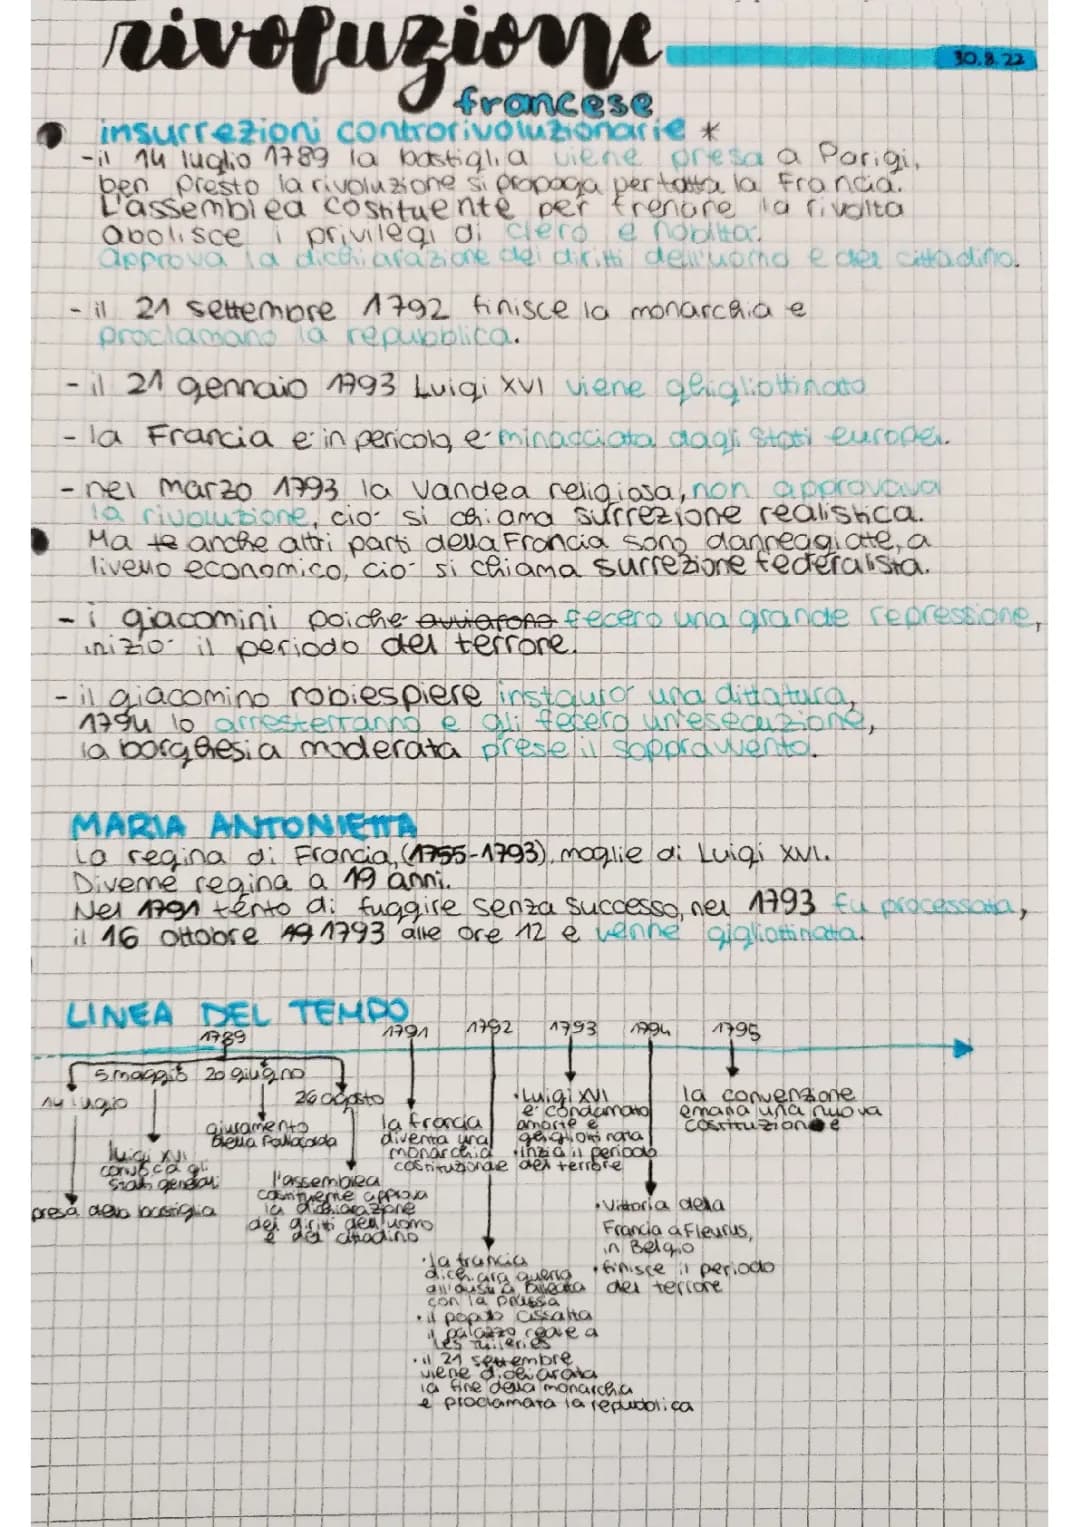 rivoluzione
30.8.22
francese
insurrezioni controrivoluzionarie *
-il 14 luglio 1789 la bastiglia viene presa a Parigi,
ben presto la rivoluzione si propaga per tutta la Francia.
L'assemblea costituente per frenare la rivolta
abolisce i privilegi di clero e nobiltà.
approva la dichiarazione dei diritti dell'uomo e del cittadino.
- il 21 settembre 1792 finisce la monarchia e
proclamano la repubblica.
- il 21 gennaio 1793 Luigi XVI viene ghigliottinato
- la Francia è in pericolo, è minacciata dagli stati europei.
- nel marzo 1793 la Vandea religiosa, non approvava
la rivoluzione, ciò si chiama surrezione realistica.
Ma te anche altri parti della Francia sono danneggiate, a
livello economico, ciò si chiama surrezione federalista.
- i giacomini poichè avviarono fecero una grande repressione,
iniziò il periodo del terrore.
- il giacomino robiespiere instaurò una dittatura,
1794 lo arresterranno e gli fecero un'esecuzione,
la borghesia moderata prese il sopprawento.
MARIA ANTONIETTA
La regina di Francia, (1755-1793), moglie di Luigi XVI.
Divenne regina a 19 anni.
Nel 1791 tentò di fuggire senza successo, nel 1793 fu processata,
il 16 ottobre 19 1793 alle ore 12 e venne gigliottinata.
LINEA DEL TEMPO
1789 1791 1792 1793 1794 1795
5 maggio 20 giugno
14 luglio
26 agosto
giuramento
della Pallacorda
luigi XVI
convoca gli
stati generali
presa della bastiglia
l'assemblea
costituente approva
la dichiarazione
dei diritti dell'uomo
e del cittadino
la francia
diventa una
monarchia
costituzionale
• la francia
dichiara guerra
all'austria alleata
con la prussia
• il popolo assalta
il palazzo reale a
Les Tuileries
• il 21 settembre
viene dichiarata
la fine della monarchia
e proclamata la repubblica
• Luigi XVI
è condannato
a morte e
ghigliottinato
• inizia il periodo
del terrore
• vittoria della
Francia a Fleurus,
in Belgio
• finisce il periodo
del terrore
la convenzione
emana una nuova
costituzione